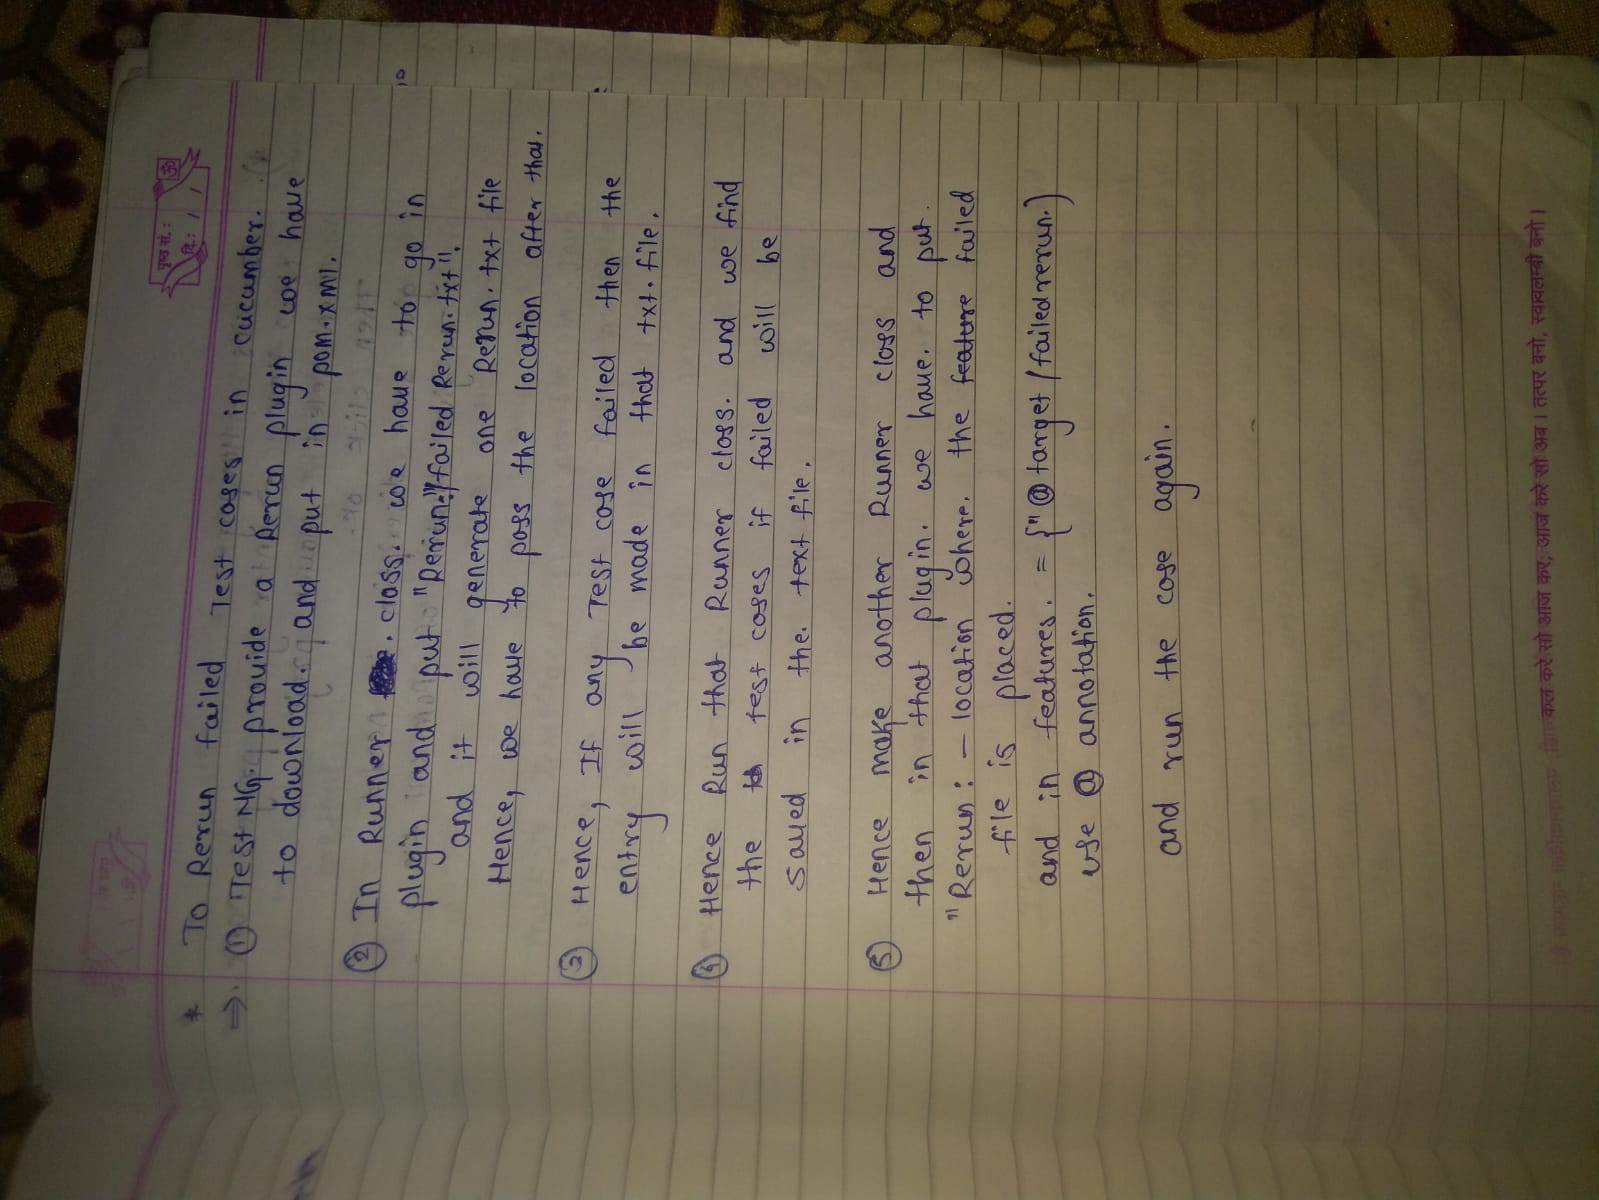 पृष्ठ सं.:
दि.: / /
* To Rerun failed Test cases in cucumber.
⇒ ① Test NG. provide a Rerun plugin we have
to download. and put in pom.xml.
② In Runner . class. we have to go in
plugin and put "Rerun:"/failed Rerun.txt".
and it will generate one Rerun.txt file
Hence, we have to pass the location after that.
③ Hence, If any Test case failed then the
entry will be made in that txt.file.
④ Hence Run that Runner class. and we find
the test cases if failed will be
saved in the. text file.
⑤ Hence make another Runner class and
then in that plugin. we have. to put.
"Rerun: – location where. the feature failed
file is placed.
and in features. = {"@target/failedrerun.)
use @ annotation.
and run the case again.
कल करे सो आज कर, आज करे सो अब। तत्पर बनो, स्वावलम्बी बनो।